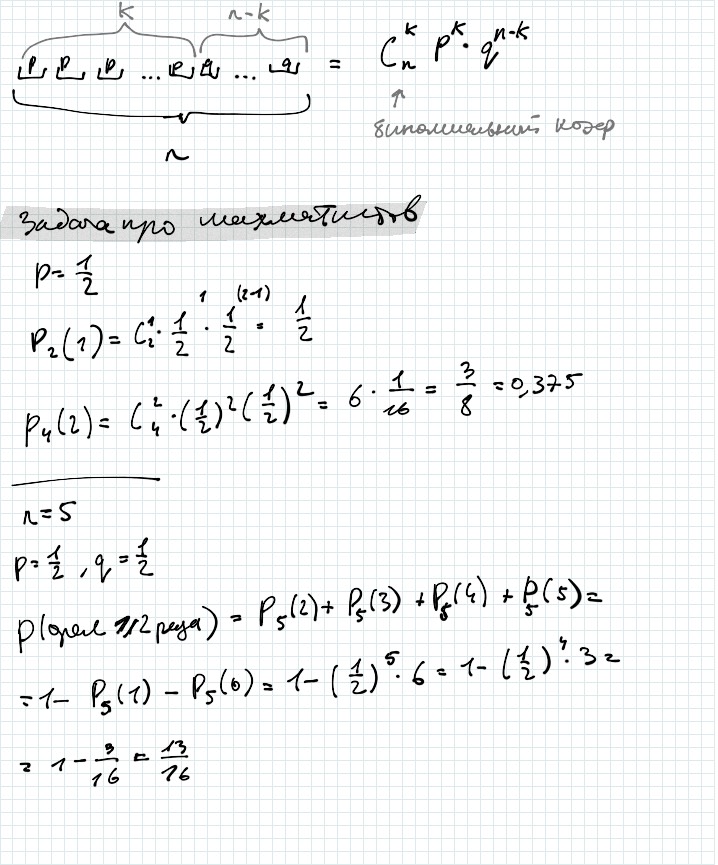 k n-k
p p p ... p q ... q = C_n^k p^k · q^{n-k}
n
биномиальный коэф
Задача про шахматистов
p = 1/2
P_2(1) = C_2^1 · 1/2^1 · 1/2^{(2-1)} = 1/2
P_4(2) = C_4^2 · (1/2)^2 (1/2)^2 = 6 · 1/16 = 3/8 = 0,375
n = 5
p = 1/2 , q = 1/2
P(орел ≥2 раза) = P_5(2) + P_5(3) + P_5(4) + P_5(5) =
= 1 - P_5(1) - P_5(0) = 1 - (1/2)^5 · 6 = 1 - (1/2)^4 · 3 =
= 1 - 3/16 = 13/16